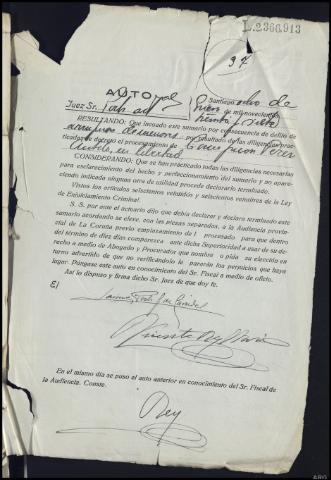 L.2366.913
34
AUTO
Juez Sr.
Santiago ocho de
de mil novecientos
treinta y siete
RESULTANDO: Que incoado este sumario por consecuencia de delito de
de menores por resultado de las diligencias prac-
ticadas se decretó el procesamiento de
en libertad
CONSIDERANDO: Que se han practicado todas las diligencias necesarias
para esclarecimiento del hecho y perfeccionamiento del sumario y no apare-
ciendo indicada ninguna otra de utilidad procede declararlo terminado.
Vistos los artículos seiscientos veintidós y seiscientos veintitrés de la Ley
de Enjuiciamiento Criminal:
S. S. por ante mí actuario dijo que debía declarar y declara terminado este
sumario acordando se eleve, con las piezas separadas, a la Audiencia provin-
cial de La Coruña previo emplazamiento de l procesado para que dentro
del término de diez días comparezca ante dicha Superioridad a usar de su de-
recho a medio de Abogado y Procurador que nombre o pida su elección se
turno advertido de que no verificándolo le pararán los perjuicios que haya
lugar. Póngase este auto en conocimiento del Sr. Fiscal a medio de oficio.
Así lo dispuso y firma dicho Sr. Juez de que doy fe.
El
En el mismo día se puso el auto anterior en conocimiento del Sr. Fiscal de
la Audiencia. Conste.
Rey